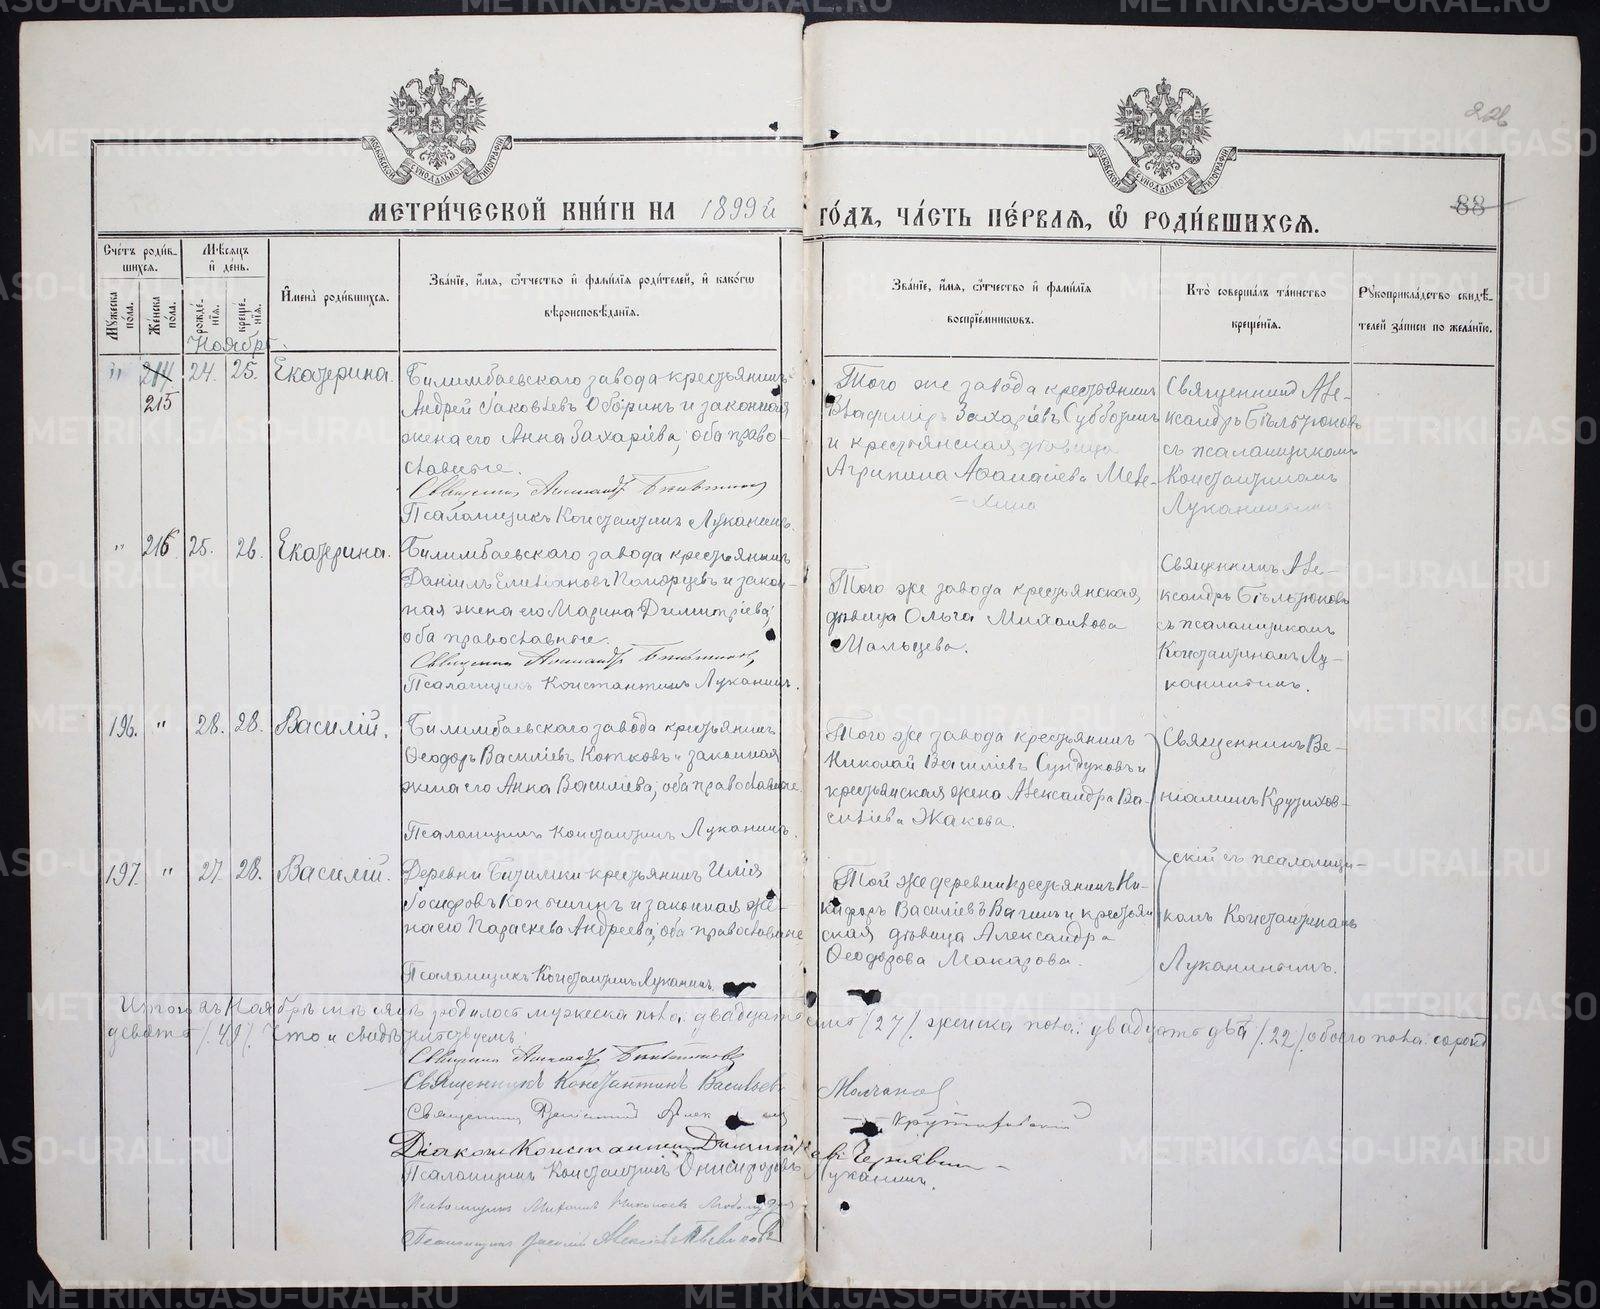 226
88
МЕТРИ́ЧЕСКОЙ КНИ́ГИ НА 1899й ГО́ДЪ, ЧА́СТЬ ПЕ́РВАѦ, Ѽ РОДИ́ВШИХСѦ.
Сче́тъ роди́вшихсѧ.
Мꙋжеска по́ла.
Же́нска по́ла.
Мѣ́сѧцъ и҆ де́нь.
рожде́нїѧ.
креще́нїѧ.
И҆мена̀ роди́вшихсѧ.
Зва́нїе, и҆́мѧ, ѻ҆́тчество и҆ фами́лїѧ роди́телей, и҆ како́гѡ
вѣроисповѣ́данїѧ.
Зва́нїе, и҆́мѧ, ѻ҆́тчество и҆ фами́лїѧ
воспрїе́мникѡвъ.
Кто̀ соверша́лъ та́инство
креще́нїѧ.
Рꙋкоприкла́дство свидѣ́-
телей за́писи по жела́нїю.
Ноябрь.
" 214 215 24. 25. Екатерина.
Билимбаевскаго завода крестьянинъ
Андрей Іаковлевъ Оборинъ и законная
жена его Анна Захаріева, оба право-
славные.
Священникъ Александръ
Псаломщикъ Константинъ Луканинъ.
Того же завода крестьянинъ
Владиміръ Захаріевъ Субботинъ
и крестьянская дѣвица
Агрипина Аѳанасіева Меле-
=хина
Священникъ Але-
ксандръ Бѣльтюковъ
съ псаломщикомъ
Константиномъ
Луканинымъ
" 216 25. 26. Екатерина.
Билимбаевскаго завода крестьянинъ
Даніилъ Поморцевъ и закон-
ная жена его Марина Димитріева,
оба православные.
Священникъ Александръ
Псаломщикъ Константинъ Луканинъ.
Того же завода крестьянская
дѣвица Ольга Михаилова
Мальцева.
Священникъ Але-
ксандръ Бѣльтюковъ
съ псаломщикомъ
Константиномъ Лу-
канинымъ.
196. " 28. 28. Василій.
Билимбаевскаго завода крестьянинъ
Ѳеодоръ Василіевъ Котковъ и законная
жена его Анна Василіева, оба православные.
Псаломщикъ Константинъ Луканинъ.
Того же завода крестьянинъ
Николай Василіевъ Сундуковъ и
крестьянская жена Александра Ва-
силіева Жакова.
197. " 27. 28. Василій.
Деревни Битимки крестьянинъ Илія
Іосифовъ Конышинъ и законная же-
на его Параскева Андреева, оба православные
Псаломщикъ Константинъ Луканинъ.
Той же деревни крестьянинъ Ни-
кифоръ Василіевъ Вагинъ и крестьян
ская дѣвица Александра
Ѳеодорова Макарова.
Священникъ Ве-
ніаминъ Крутихов-
скій съ псаломщи-
комъ Константиномъ
Луканинымъ.
Итого въ Ноябрѣ мѣсяцѣ родилось мужеска пола: двадцать семь /27/, женска пола: двадцать два /22/, обоего пола: сорокъ
девять /49/. Что и свидѣтельствуемъ:
Священникъ Александръ
Священникъ Константинъ Васильевъ Молчановъ
Священникъ Крутиховскій
Діаконъ Константинъ Димитріевъ Чернявинъ
Псаломщикъ Константинъ Онисифоровъ Луканинъ.
Псаломщикъ Михаилъ
Псаломщикъ Василій Алексіевъ